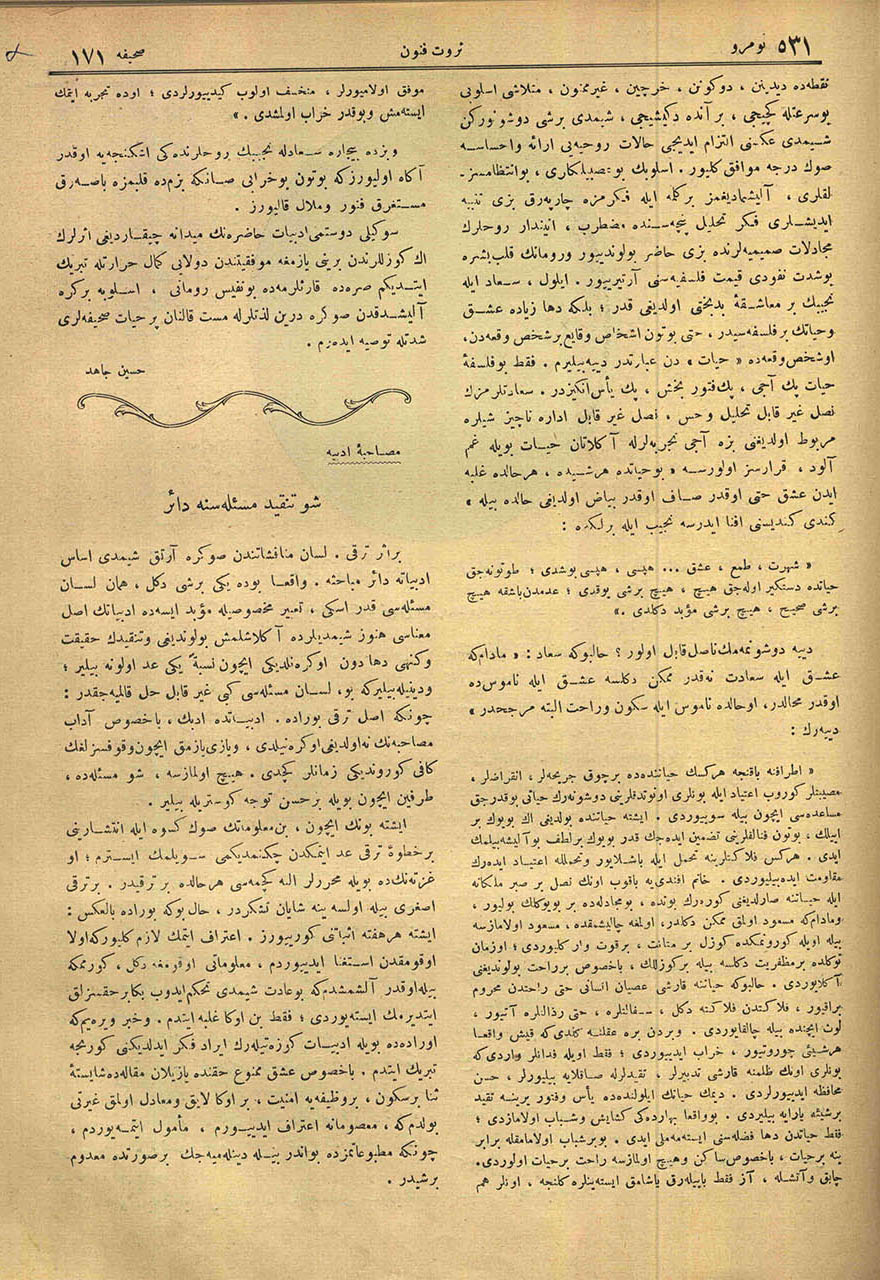 نومرو ٥٣١
ثروت فنون
صحيفه ١٧١
نقطه‌ده ديدينن ، دوكونن ، خرچين ، غيرممنون ، متلاشى اسلوبى
بوسرعتله كچيجى ، بر آنده دكيشيجى ، شيمدى برشى دوشونوركن
شيمدى عكسنى التزام ايديجى حالات روحيه‌يى ارائه واحساسه
صوك درجه موافق كليور . اسلوبك بو عصبيلكلرى ، بوانتظامسز-
لقلرى ، آليشماديغمز بركلمه ايله فكرمزه چارپه‌رق بزى تنبيه
ايديشلرى فكر تحليل پنچه‌سنده مضطرب ، ايننلدار روحلرك
مجادلات صميميه‌لرنده بزى حاضر بولوندييور ورومانك قلب بشره
بوشدت نفوذى قيمت فلسفيه‌سنى آرتيرييور . ايلول ، سعاد ايله
نجيبك بر معاشقهٔ بدبختى اولديغى قدر ؛ بلكه دها زياده عشق
وحياتك بر فلسفه‌سيدر ، حتى بوتون اشخاص وقايع برشخص وقعه‌دن،
اوشخص وقعه‌ده « حيات » دن عبارتدر ديه‌بيليرم . فقط بوفلسفهٔ
حيات پك آجى ، پك فتور بخش ، پك يأس انكيزدر . سعادتلرمزك
نصل غير قابل تحليل وحس ، نصل غير قابل اداره ناچيز شيلره
مربوط اولديغنى بزه آجى تجربه‌لرله آكلاتان حيات بويله غم
آلود ، قرارسز اولورسه « بوحياتده هرشيده ، هرحالده غلبه
ايدن عشق حتى اوقدر صاف اوقدر بياض اولديغى حالده بيله »
كندى كنديسنى افنا ايدرسه نجيب ايله برلكده :
« شهرت ، طمع ، عشق ... هپسى ، هپسى بوشدى ؛ طوتونه‌جق
حياتده دستكير اوله‌جق هيچ ، هيچ برشى يوقدى ؛ عدمدن‌باشقه هيچ
برشى صحيح ، هيچ برشى مؤبد دكلدى .»
دييه دوشونمه‌مك ناصل قابل اولور ؟ حالبوكه سعاد : « مادام‌كه
عشق ايله سعادت نه‌قدر ممكن دكلسه عشق ايله ناموس‌ده
اوقدر محالدر، اوحالده ناموس ايله سكون وراحت البته مرجحدر »
دييه‌رك :
« اطرافنه باقنجه هركسك حياتنده‌ده برچوق جريحه‌لر ، انقراضلر ،
مصيبتلر كوروب اعتياد ايله بونلرى اونوتدقلرينى دوشونه‌رك حياتى بوقدرجق
مساعده‌سى ايچون بيله سوييوردى . ايشته حياتنده بولديغى اك بويوك بر
اييلك ، بوتون فنالقلرينى تضمين ايده‌جك قدر بويوك برلطف بوآليشه‌بيلمك
ايدى . هركس فلاكتلرينه تحمل ايله باشلايور وتحمله اعتياد ايده‌رك
مقاومت ايده‌بيليوردى . خانم افندى‌يه باقوب اونك نصل بر صبر ملكانه
ايله حياتنه صارلديغنى كوره‌رك بونده ، بومجادله‌ده بر بويوكلك بوليور ،
ومادام‌كه مسعود اولمق ممكن دكلدر، اولمغه چاليشمقده ، مسعود اولامازسه
بيله اويله كورونمكده كوزل بر متانت ، برقوت وار كليوردى ؛ اوزمان
توكلده برمظفريت دكلسه بيله بركوزللك ، باخصوص برراحت بولونديغنى
آكلايوردى . حالبوكه حياتنه قارشى عصيان انسانى حتى راحتدن محروم
براقيور ، فلاكتدن فلاكته دكل ، سفالتلره ، حتى رذالتلره آتيور ،
لوث ايچنده بيله چالقايوردى . وبردن بره عقلنه كلدى‌كه قيش واقعا
هرشيئى چوروتيور ، خراب ايدييوردى ؛ فقط اويله فدانلر واردى‌كه
بونلرى اونك ظلمنه قارشى تدبيرلر ، تقيدلرله صاقلايه بيليورلر ، حسن
محافظه ايدييورلردى . ديمك حياتك ايلولنده‌ده يأس وفتور يرينه تقيد
برشيئه يارايه بيليردى . بوواقعا بهارده‌كى كشايش وشباب اولامازدى ؛
فقط حياتدن دها فضله‌سنى ايسته‌مه‌ملى ايدى . بوبرشباب اولامامقله برابر
ينه برحيات ، باخصوص ساكن وهيچ اولمازسه راحت برحيات اولوردى.
چابق وآتشله ، آز فقط ياپيله‌رق ياشامق ايسته‌ينلره كلنجه ، اونلر هم
موفق اولاميورلر ، منخسف اولوب كيدييورلردى ؛ اوده تجربه ايتمك
ايسته‌مش وبوقدر خراب اولمشدى . »
وبزده بيچاره سعادله نجيبك روحلرنده‌كى اشكنجه‌يه اوقدر
آكاه اوليورزكه بوتون بوخرابى صانكه بزم‌ده قلبمزه باصه‌رق
مستغرق فتور وملال قاليورز .
سوكيلى دوستمى ادبيات حاضره‌نك ميدانه چيقارديغى اثرلرك
اك كوزللرندن برينى يازمغه موفقيتندن دولايى كمال حرارتله تبريك
ايتديكم صره‌ده قارئلرمه‌ده بونفيس رومانى ، اسلوبه بركره
آليشدقدن صوكره درين لذتلرله مست قالنان برحيات صحيفه‌لرى
شدتله توصيه ايده‌رم .
حسين جاهد
مصاحبهٔ ادبيه
شو تنقيد مسئله‌سنه دائر
براثر ترقى . لسان مناقشاتندن صوكره آرتق شيمدى اساس
ادبياته دائر مباحثه . واقعا بوده يكى برشى دكل ، همان لسان
مسئله‌سى قدر اسكى ، تعبير مخصوصيله مؤبد ايسه‌ده ادبياتك اصل
معناسى هنوز شيمديلرده آكلاشلمش بولونديغى وتنقيدك حقيقت
وكنهى دها دون اوكره‌نلديكى ايچون نسبةً يكى عد اولونه بيلير ؛
ودينيله‌بيليركه بو، لسان مسئله‌سى كبى غير قابل حل قالميه‌جقدر :
چونكه اصل ترقى بوراده . ادبياتده ادبك ، باخصوص آداب
مصاحبه‌نك نه‌اولديغى اوكره‌نيلدى ، ويازى‌يازمق ايچون‌وقوفسزلغك
كافى كورونديكى زمانلر كچدى . هيچ اولمازسه ، شو مسئله‌ده ،
طرفين ايچون بويله برحسن توجه كوستريله بيلير .
ايشته بونك ايچون ، بن‌معلوماتك صوك كسوه ايله انتشارينى
برخطوهٔ ترقى عد ايتمكدن چكنمديكمى سويلمك ايسترم ؛ او
غزته‌نك‌ده بويله محررلر الـنه كچمه‌سى هرحالده بر ترقيدر . برترقى
اصغرى بيله اولسه ينه شايان تشكردر ، حال بوكه بوراده بالعكس :
ايشته هرهفته اثباتنى كورييورز . اعتراف ايتمك لازم كليوركه‌اولا
اوقومقدن استغنا ايدييوردم ، معلوماتى اوقومغه دكل ، كورمكه
بيله‌اوقدر آلشمشدم‌كه بوعادت شيمدى تحكم‌ايدوب بكابر حقسزلق
ايتديرمك ايسته‌يوردى ؛ فقط بن اوكا غلبه ايتدم . وخبر ويره‌يم‌كه
اوراده‌ده بويله ادبيات كوزه‌تيله‌رك ايراد فكر ايدلديكنى كورنجه
تبريك ايتدم . باخصوص عشق ممنوع حقنده يازيلان مقاله‌ده شايستهٔ
ثنا برسكون ، بروظيفه‌يه امنيت ، بر اوكا لايق ومعادل اولمق غيرتى
بولدم‌كه ، معصومانه اعتراف ايدييورم ، مأمول ايتمه‌يوردم ،
چونكه مطبوعاتمزده بواندر بيله دينله‌ميه‌جك برصورتده معدوم
برشيدر .